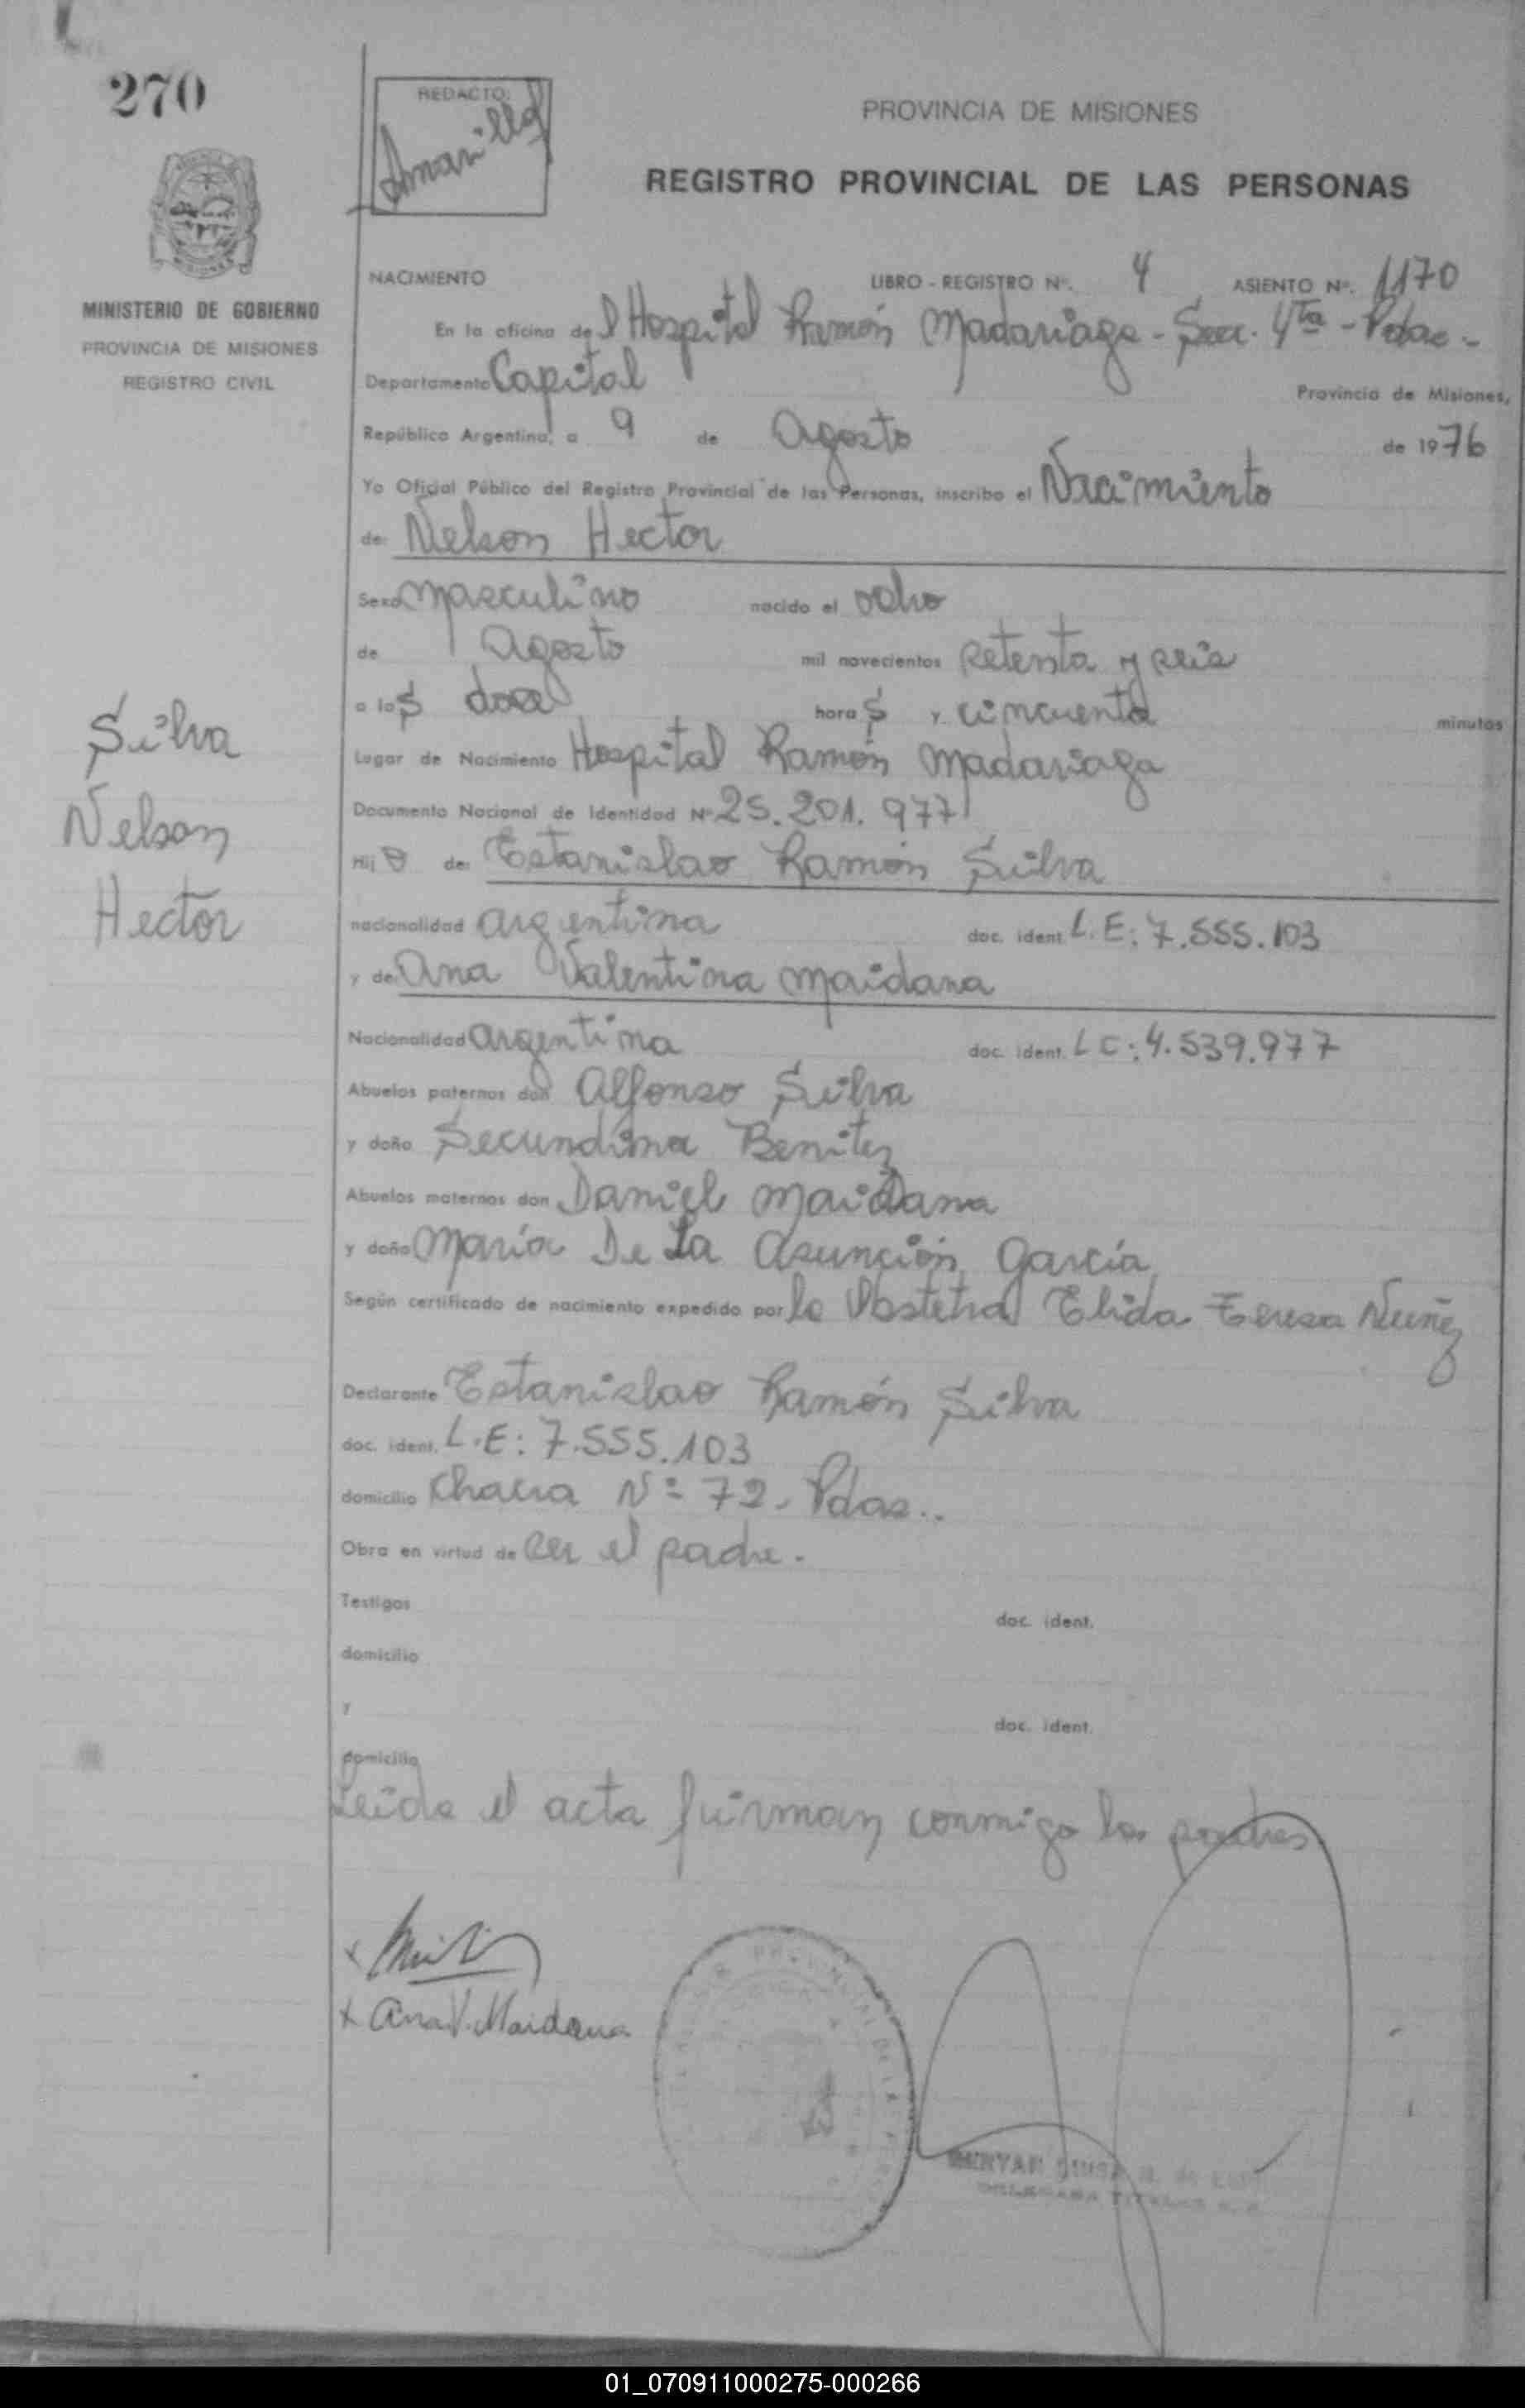 270
REDACTO:
Amarilla
PROVINCIA DE MISIONES
REGISTRO PROVINCIAL DE LAS PERSONAS
MISIONES
MINISTERIO DE GOBIERNO
PROVINCIA DE MISIONES
REGISTRO CIVIL
NACIMIENTO LIBRO - REGISTRO Nº. 4 ASIENTO Nº. 1170
En la oficina del Hospital Ramón Madariaga - Secc. 4ta - Pdas -
Departamento Capital Provincia de Misiones,
República Argentina, a 9 de Agosto de 1976
Yo Oficial Público del Registro Provincial de las Personas, inscribo el Nacimiento
de: Nelson Hector
Sexo masculino nacido el ocho
de Agosto mil novecientos setenta y seis
a las doce horas y cincuenta minutos
Lugar de Nacimiento Hospital Ramón Madariaga
Documento Nacional de Identidad Nº 25.201.977
Hijo de: Estanislao Ramón Silva
nacionalidad argentina doc. ident. L.E: 7.555.103
y de: Ana Valentina Maidana
Nacionalidad argentina doc. ident. LC: 4.539.977
Abuelos paternos don Alfonso Silva
y doña Secundina Benitez
Abuelos maternos don Daniel Maidana
y doña María De La Asunción García
Según certificado de nacimiento expedido por la Obstetra Elida Teresa Nuñez
Declarante Estanislao Ramón Silva
doc. ident. L.E: 7.555.103
domicilio Chacra Nº 72. Pdas..
Obra en virtud de ser el padre.
Testigos doc. ident.
domicilio
y doc. ident.
domicilio
Leida el acta firman conmigo los padres
Silva
Nelson
Hector
x
x Ana V. Maidana
01_070911000275-000266